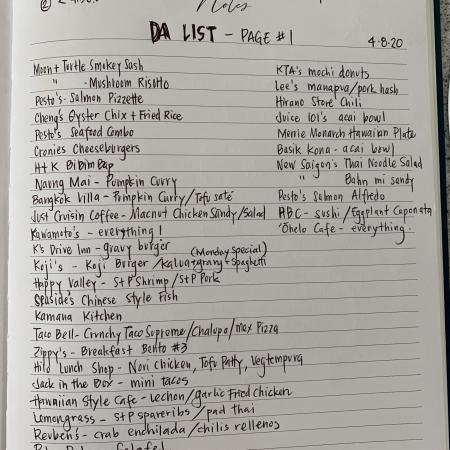 Notes
DA LIST - PAGE #1
4.8.20
Moon + Turtle Smokey Sash
" - Mushroom Risotto
Pesto's - Salmon Pizzette
Cheng's Oyster Chix + Fried Rice
Pesto's Seafood Combo
Cronies Cheeseburgers
H+K BiBimBap
Naung Mai - Pumpkin Curry
Bangkok Villa - Pumpkin Curry/Tofu saté
Just Cruisin Coffee - Macnut Chicken Sandy/Salad
Kawamoto's - everything!
K's Drive Inn - gravy burger
(Monday Special)
Koji's - Koji Burger/Kalua+gravy+Spaghetti
Happy Valley - S+P Shrimp/S+P Pork
Seaside's Chinese Style Fish
Kamana Kitchen
Taco Bell - Crunchy Taco Supreme/Chalupa/Mex Pizza
Zippy's - Breakfast Bento #3
Hilo Lunch Shop - Nori Chicken, Tofu Patty, Vegtempura
Jack in the Box - mini tacos
Hawaiian Style Cafe - Lechon/garlic Fried Chicken
Lemongrass - S+P spareribs/pad thai
Reuben's - crab enchilada/chilis rellenos
KTA's mochi donuts
Lee's manapua/pork hash
Hirano Store Chili
Juice 101's acai bowl
Merrie Monarch Hawaiian Plate
Basik Kona - acai bowl
New Saigon's Thai Noodle Salad
" Bahn mi sandy
Pesto's Salmon Alfredo
ABC - sushi/Eggplant Caponata
'Ohelo Cafe - everything.